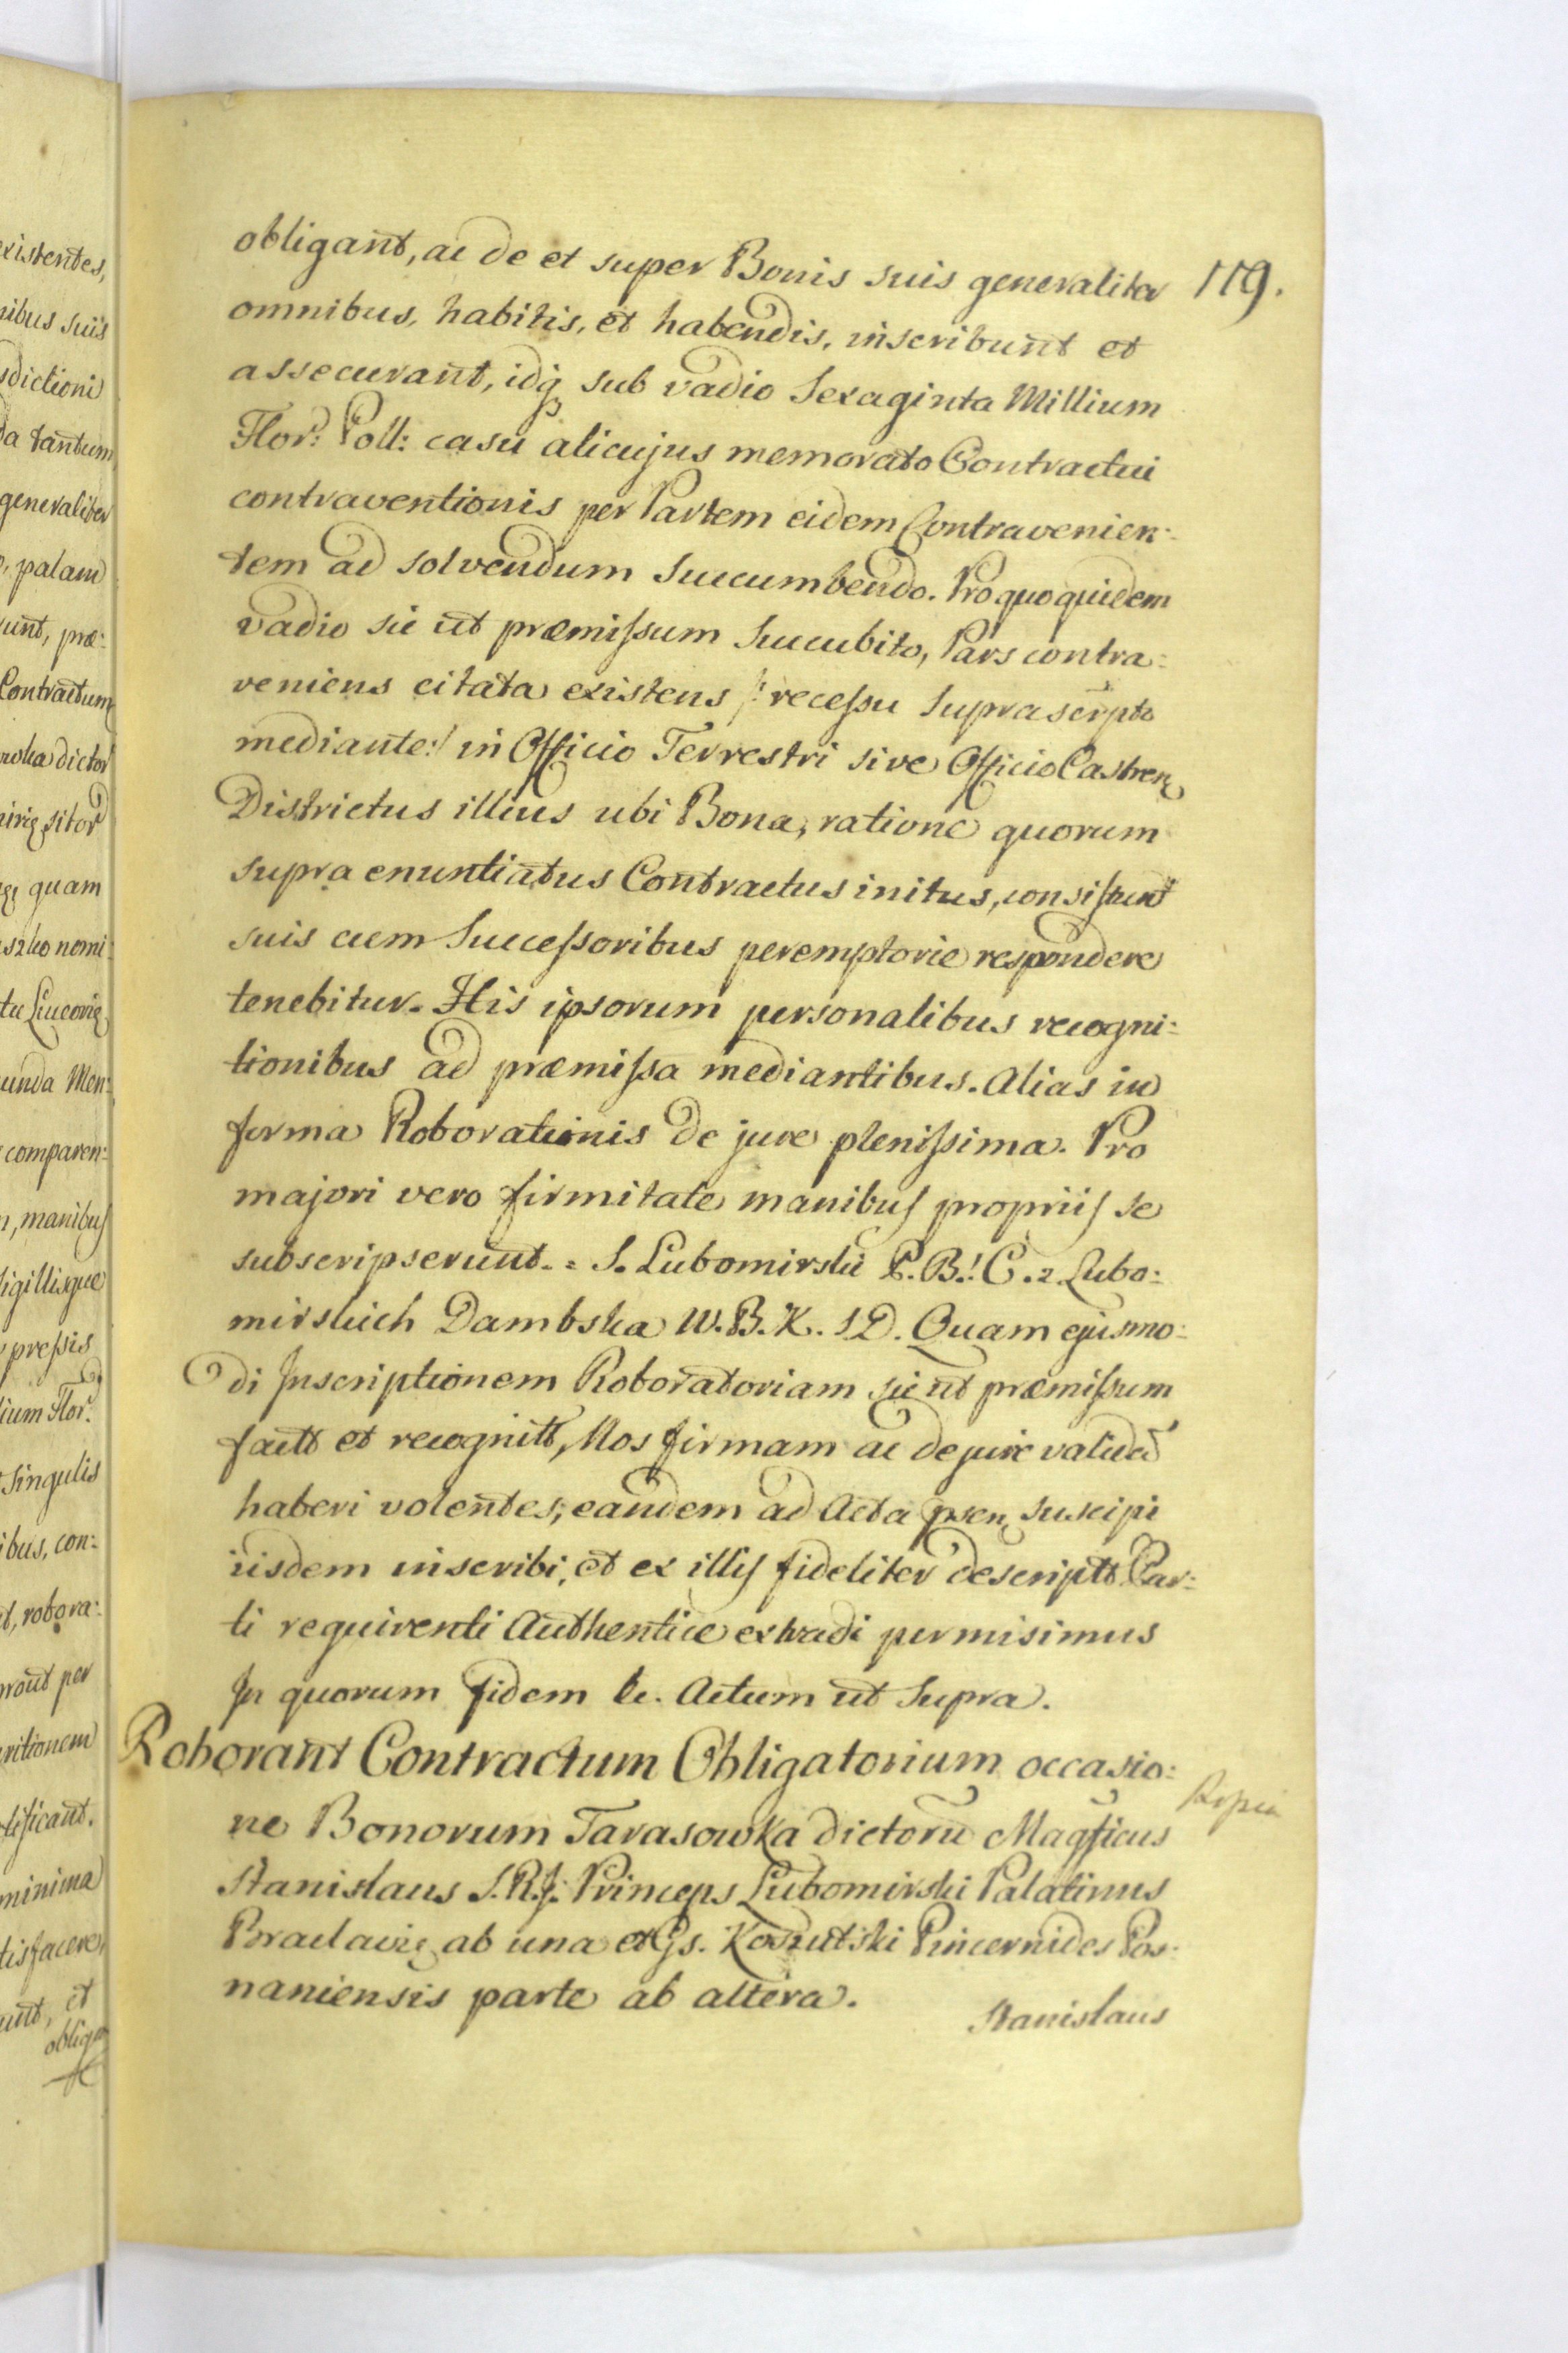 existentes,
nibus suis
sdictioni
da tantum
generaliter
, palam
unt, præ:
Contractum
dictor
sitor
quam
nomi:
unda Men:
comparen:
, manibus
sigillisque
pressis
ium Flor:
Singulis
ibus, con:
t, robora:
prout per
ritionem
tificant.
minima
tisfacere
unt, et
obligant
119.
obligant, ac de et super Bonis suis generaliter
omnibus, habitis, et habendis, inscribunt et
assecurant, idq sub vadio Sexaginta Millium
Flor: Poll: casu alicujus memorato Contractui
contraventionis per Partem eidem Contravenien:
tem ad solvendum Succumbendo. Pro quo quidem
vadio sic ut præmissum Succubito, Pars contra:
veniens citata existens /: recessu Suprascripto
mediante :/ in Officio Terrestri sive Officio Castren
Districtus illius ubi Bona, ratione quorum
supra enuntiatus Contractus initus, consistunt
suis cum Successoribus peremptorie respondere
tenebitur. His ipsorum personalibus recogni:
tionibus ad præmissa mediantibus. Alias in
forma Roborationis de jure plenissima. Pro
majori vero firmitate manibus propriis se
subscripserunt. = S. Lubomirski P. B.: C. z Lubo:
mirskich Dambska W. B. K. S D. Quam ejusmo:
di Inscriptionem Roboratoriam sic ut præmissum
factt et recognitt, Nos firmam ac de jure validã
haberi volentes; eandem ad Acta psen suscipi
iisdem inscribi, et ex illis fideliter descriptt Par:
ti requirenti Authentice extradi permisimus
In quorum fidem &c. Actum ut Supra.
Roborant Contractum Obligatorium occasio:
Kopia
ne Bonorum Tarasowka dictorũ Magficus
Stanislaus S. R. J: Princeps Lubomirski Palatinus
Braclavię ab una et Gs. Koszutski Pincernides Pos:
naniensis parte ab altera.
Stanislaus